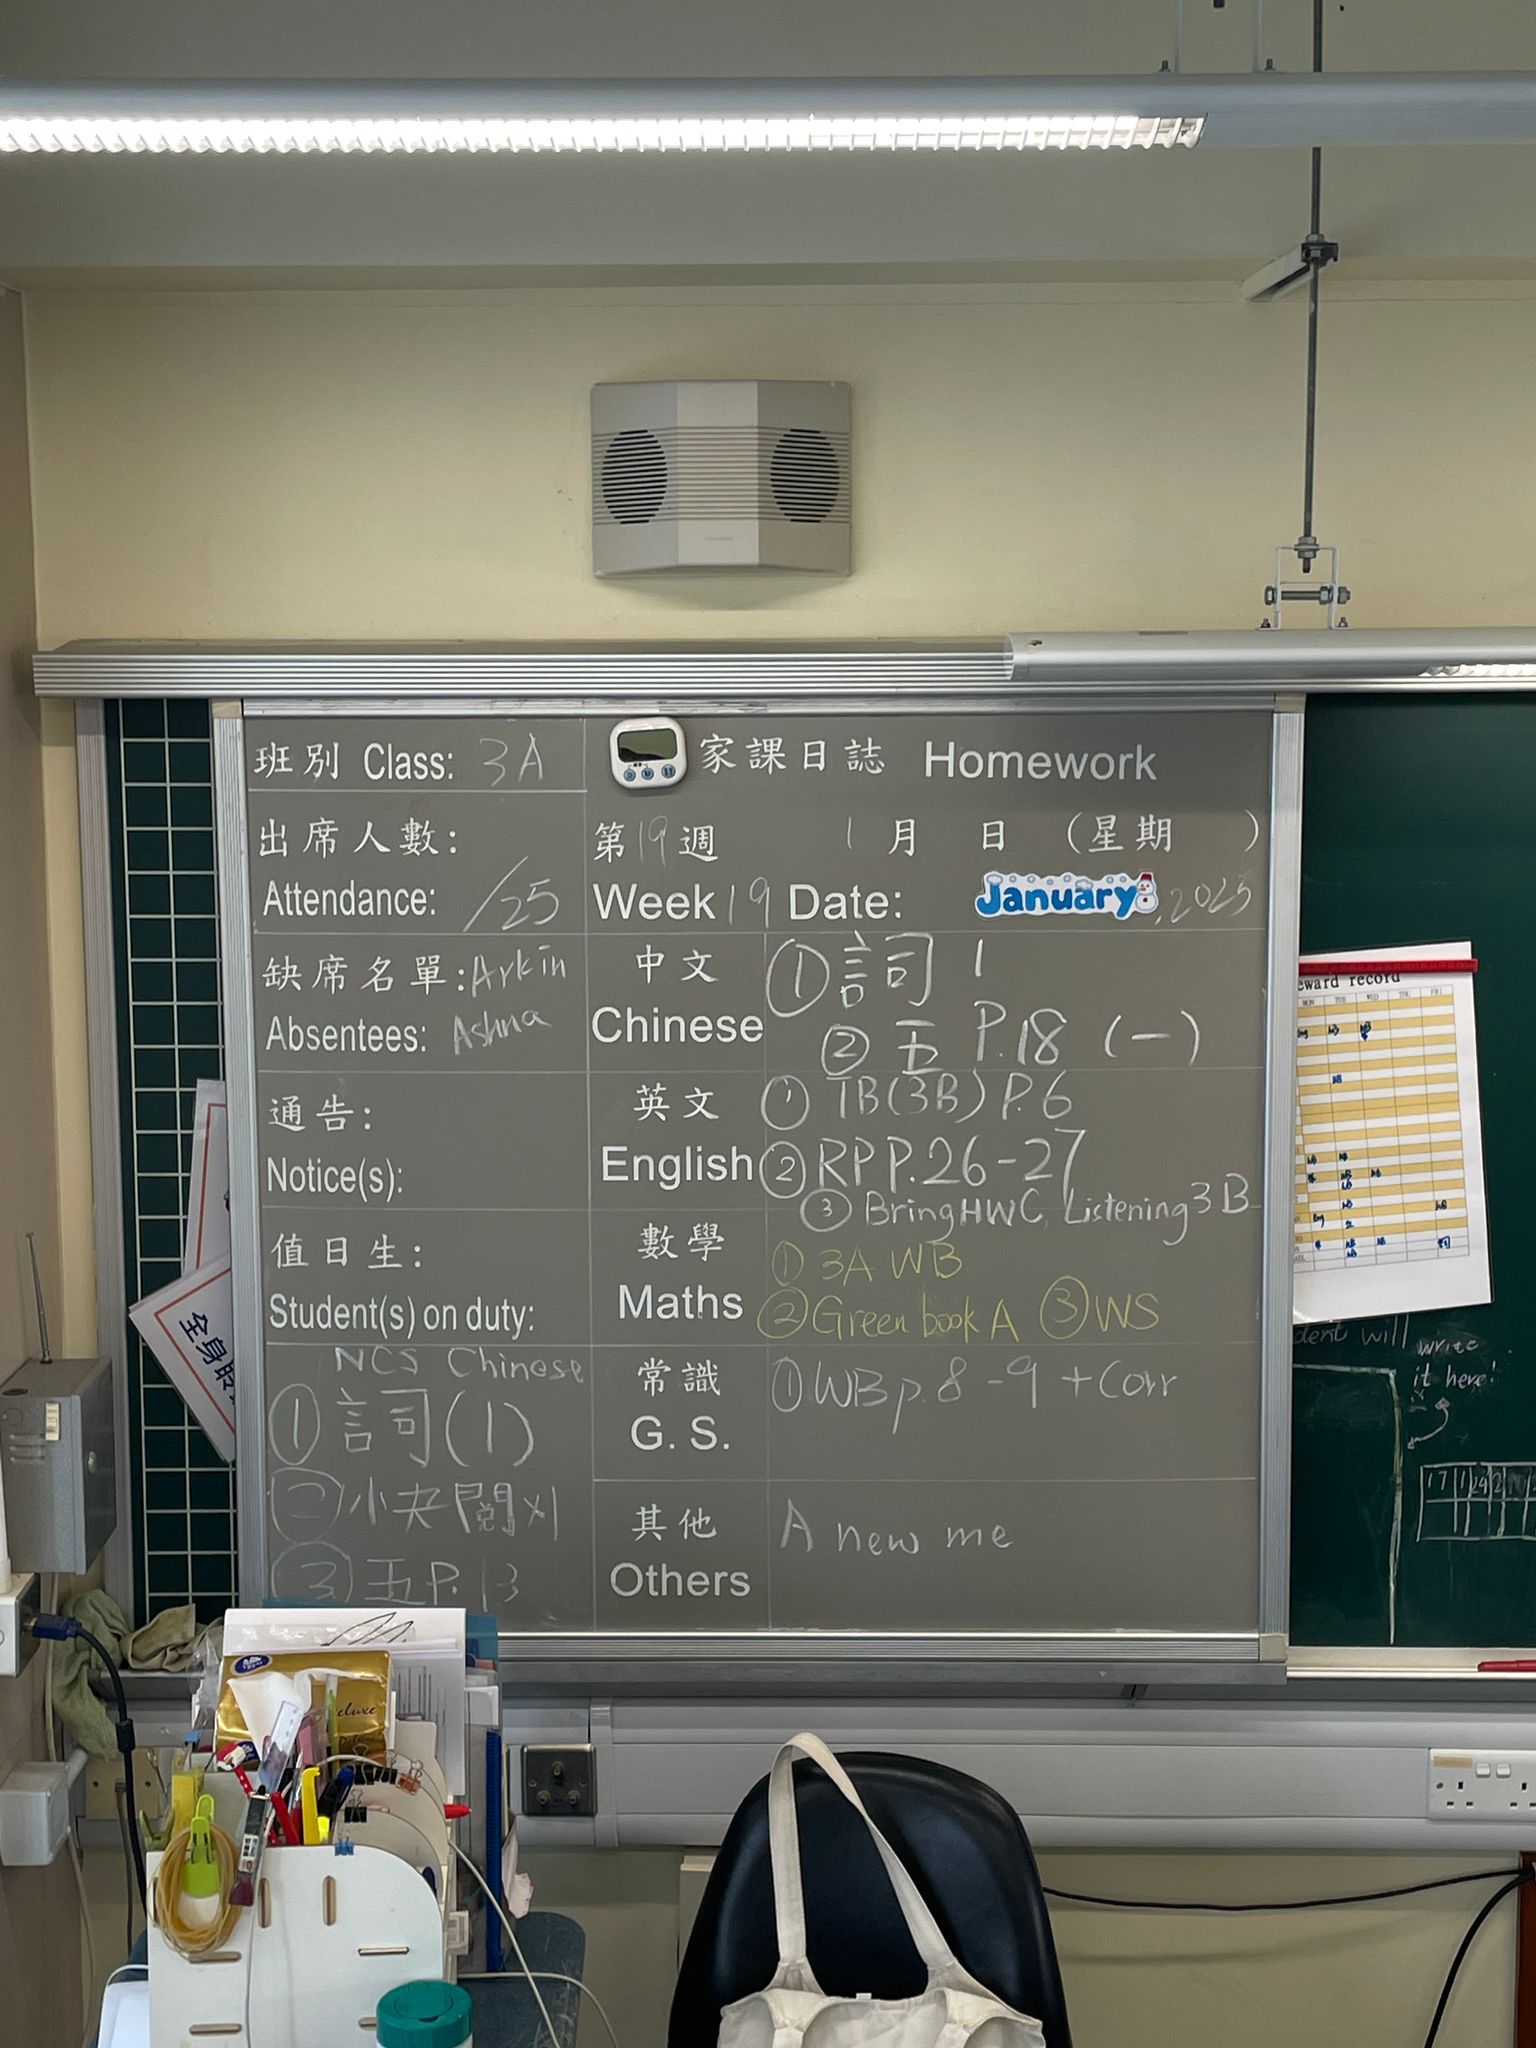 班別 Class: 3A
家課日誌 Homework
出席人數:
Attendance: /25
第19週 1月 日 (星期 )
Week 19 Date: January, 2025
缺席名單: Arkin
Absentees: Ashna
中文
Chinese
① 詞 1
② 五 P.18 (一)
通告:
Notice(s):
英文
English
① TB(3B) P.6
② RP P.26-27
③ Bring HWC, Listening 3B
值日生:
Student(s) on duty:
數學
Maths
① 3A WB
② Green book A ③ WS
NCS Chinese
① 詞(1)
② 小夫
③ 五P.13
常識
G. S.
① WB p.8-9 + Corr
其他
Others
A new me
eward record
MON TUE WED THU FRI
dent will write
it here!
全身